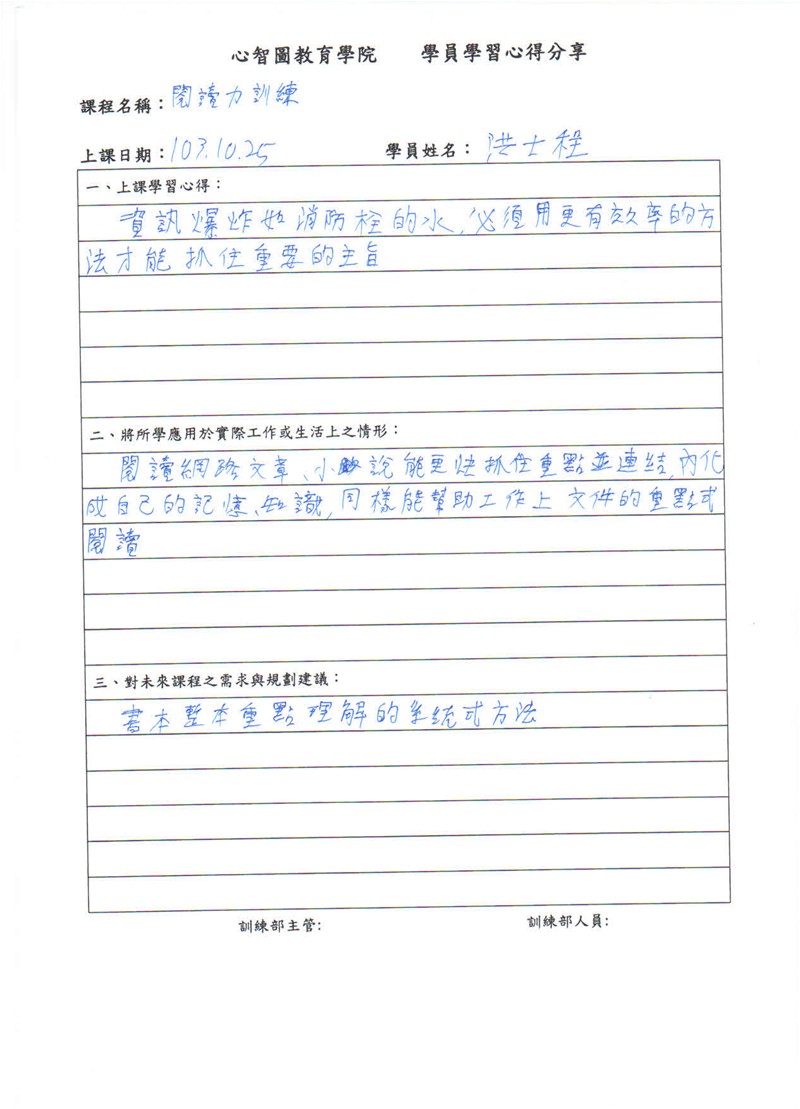 心智圖教育學院 學員學習心得分享
課程名稱：閱讀力訓練
上課日期：103.10.25 學員姓名：洪士程
一、上課學習心得：
資訊爆炸如消防栓的水，必須用更有效率的方
法才能抓住重要的主旨
二、將所學應用於實際工作或生活上之情形：
閱讀網路文章、小說能更快抓住重點並連結，內化
成自己的記憶、知識，同樣能幫助工作上文件的重點式
閱讀
三、對未來課程之需求與規劃建議：
書本整本重點理解的系統式方法
訓練部主管: 訓練部人員: